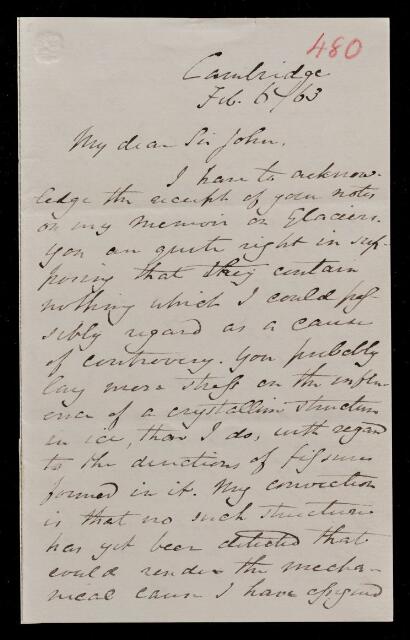 480
Cambridge
Feb. 6/63
My dear Sir John,
I have to acknow-
ledge the receipt of your notes
on my memoir on Glaciers.
You are quite right in sup-
posing that they contain
nothing which I could pos-
sibly regard as a cause
of controversy. You probably
lay more stress on the influ-
ence of a crystalline structure
in ice, than I do, with regard
to the directions of fissures
formed in it. My conviction
is that no such structure
has yet been detected that
could render the mecha-
nical cause I have assigned